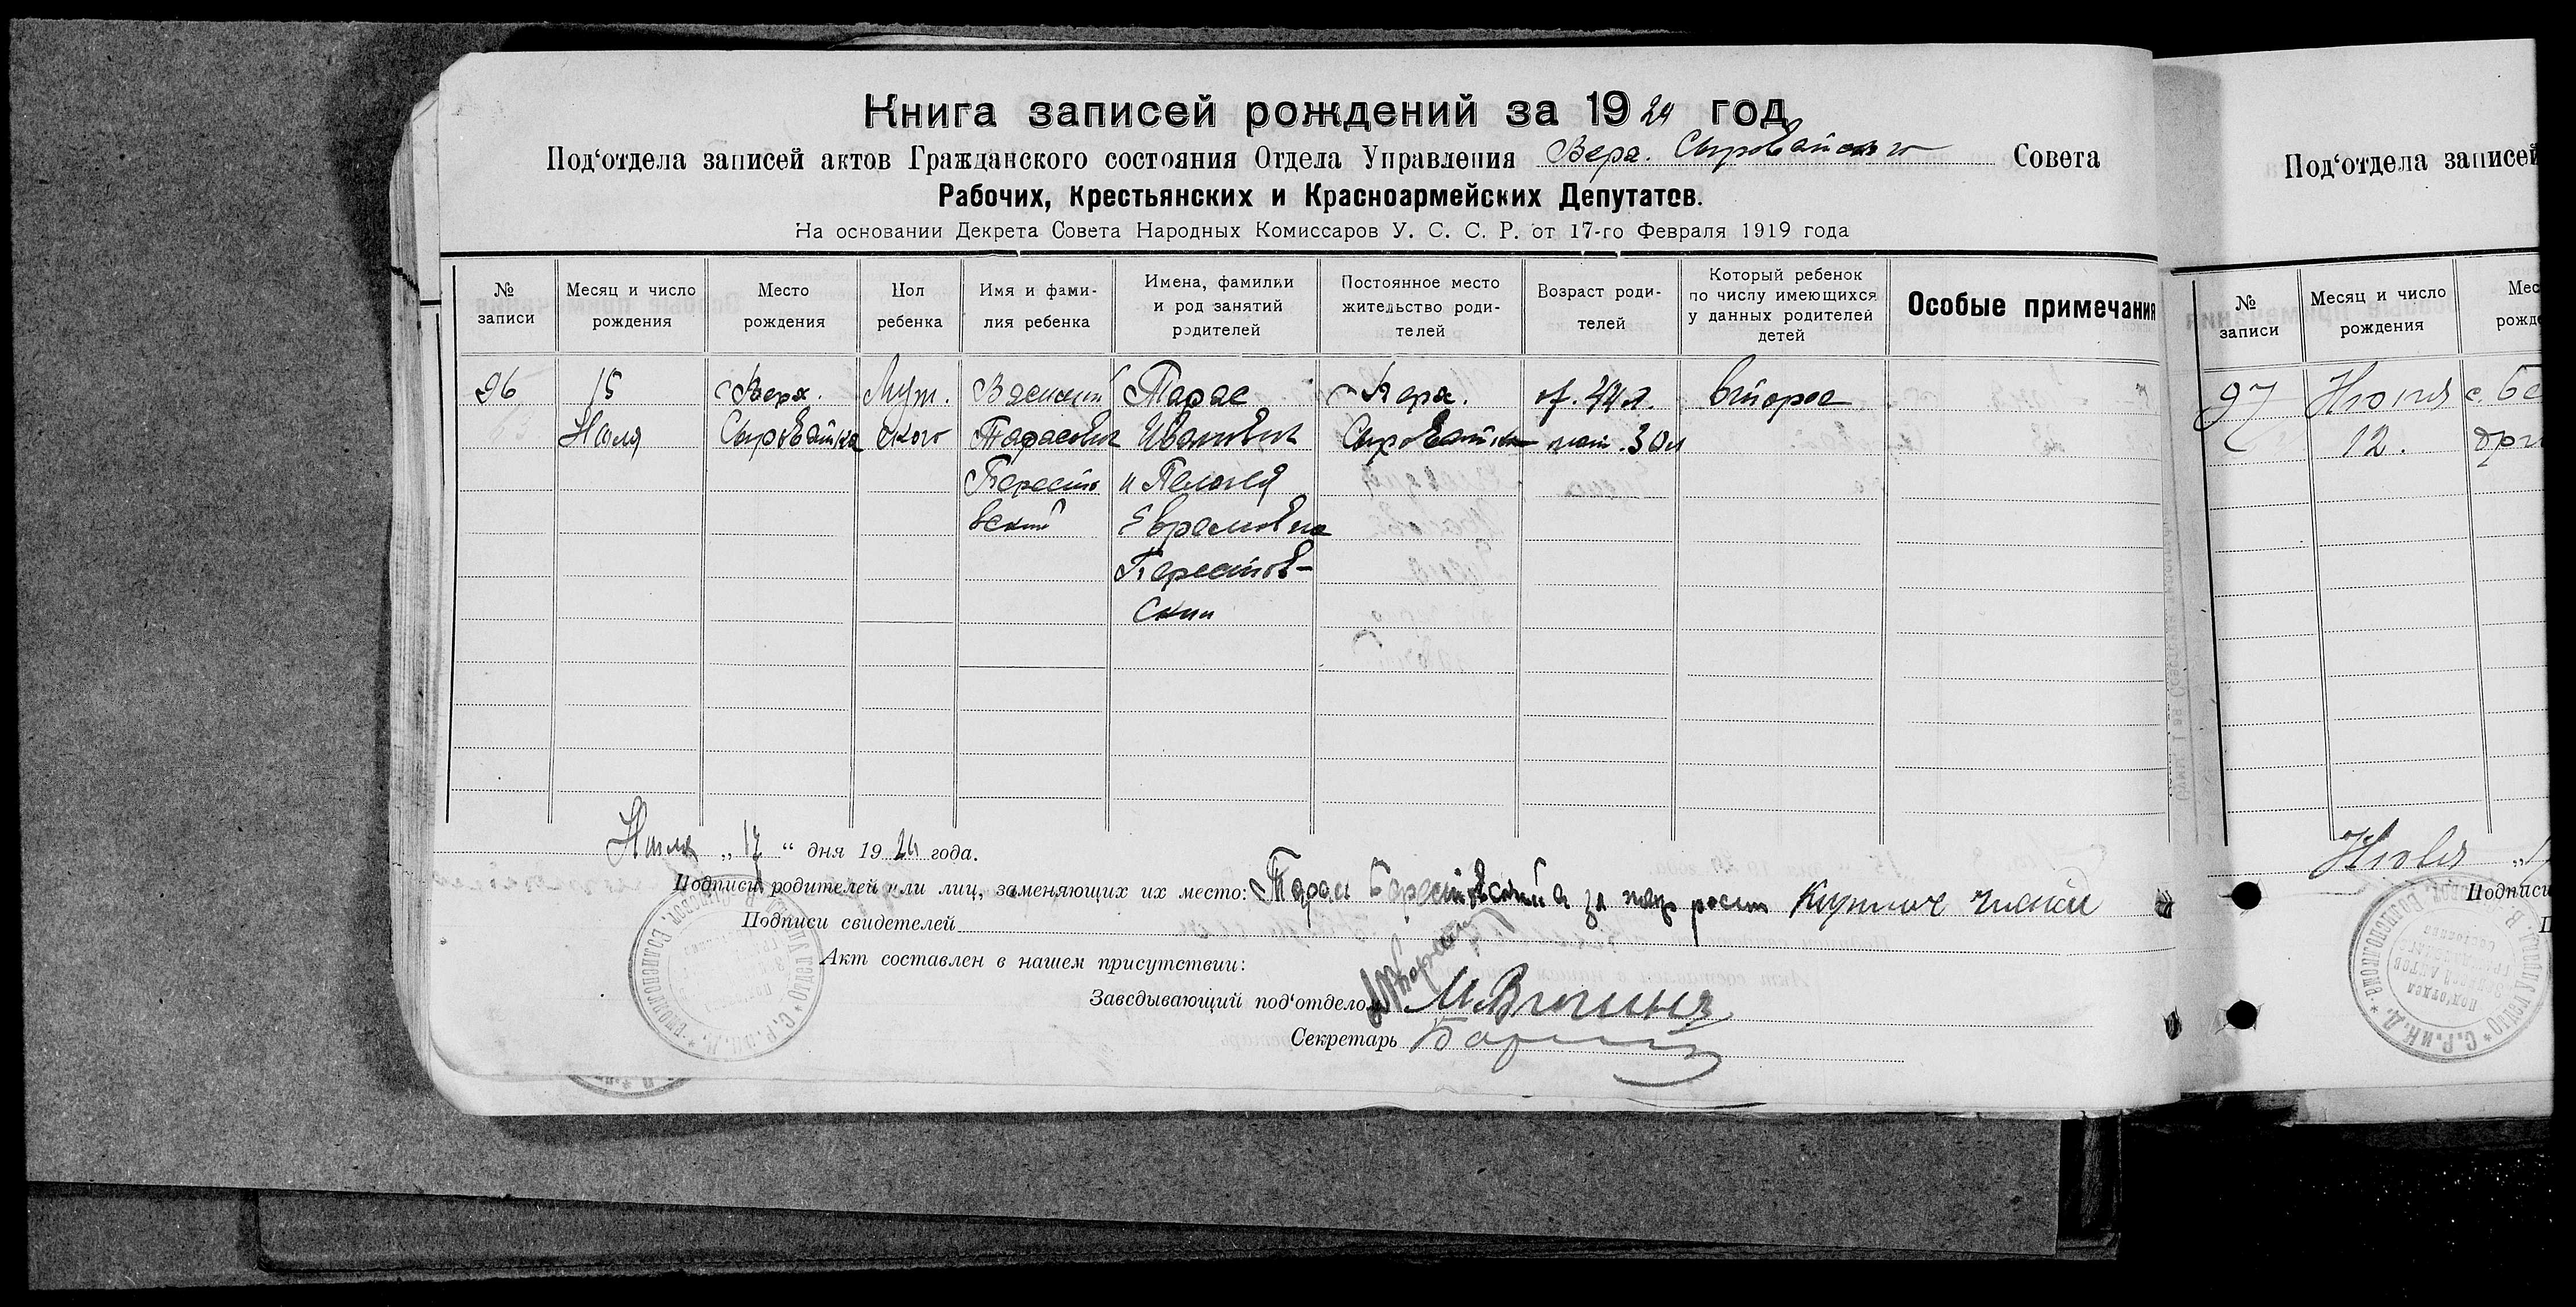 Книга записей рождений за 1924 год
Под‘отдела записей актов Гражданского состояния Отдела Управления Верх. Сыроватского Совета
Рабочих, Крестьянских и Красноармейских Депутатов.
На основании Декрета Совета Народных Комиссаров У. С. С. Р. от 17-го Февраля 1919 года
№ записи
Месяц и число рождения
Место рождения
Пол ребенка
Имя и фами-
лия ребенка
Имена, фамилии
и род занятий
родителей
Постоянное место
жительство роди-
телей
Возраст роди-
телей
Который ребенок
по числу имеющихся
у данных родителей
детей
Особые примечания
96 15 с Верх. Муж. Василий Тарас с Верх. от. 44 л. второе
Июля Сыроватка ского Тарасович Иванович Сыроватка мат. 30 л
Берестовский
и Пелагея
Берестов-
ский
Июля „17“ дня 1924 года.
Подписи родителей или лиц, заменяющих их место: Тарас Берестовский а за
Подписи свидетелей
Акт составлен в нашем присутствии:
Заведывающий под‘отделом
Секретарь
Под‘отдела записей
№
записи
Месяц и число
рождения
97 Июля с.
12.
Июля
Подписи